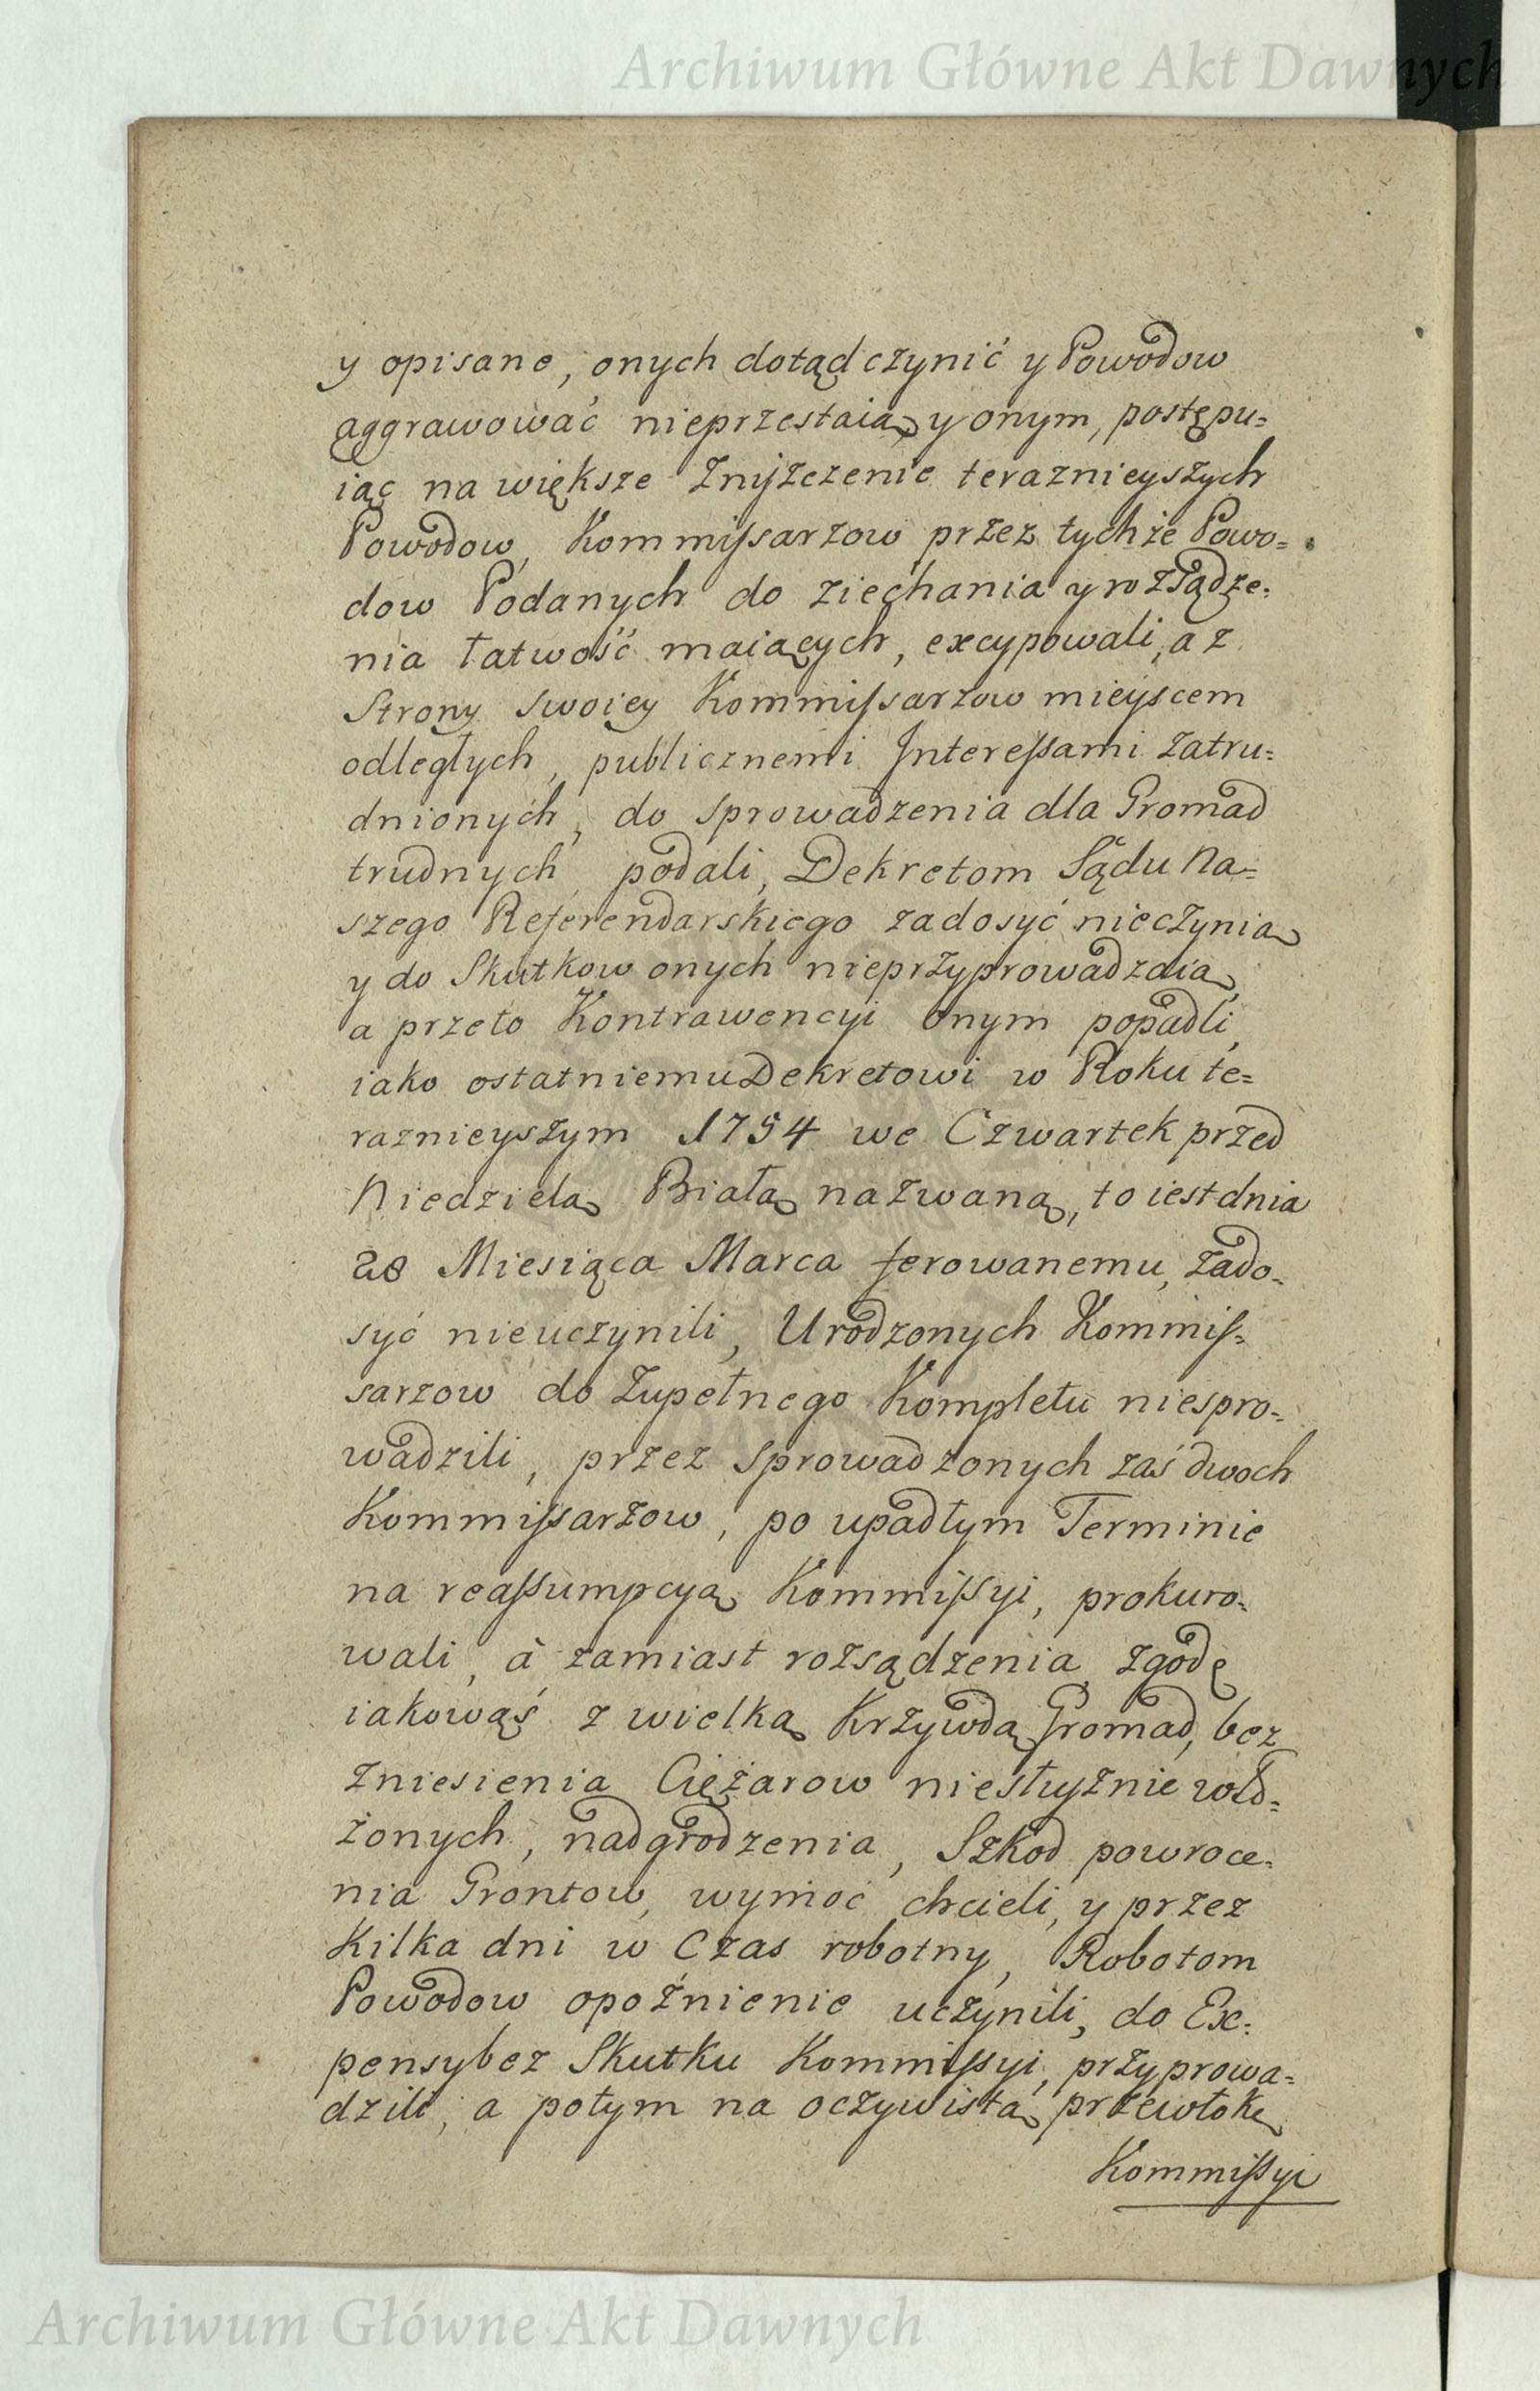 Archiwum Główne Akt Dawnych
y opisane, onych dotąd czynić y Powodow
aggrawować nieprzestaią y onym, postępu=
iąc na większe Zniszczenie teraznieyszych
Powodow, Kommissarzow przez tychże Powo=
dow Podanych do ziechania y rozsądze=
nia łatwość maiących, excypowali, a z
Strony swoiey Kommissarzow mieyscem
odległych, publicznemi Interessami zatru=
dnionych, do sprowadzenia dla Gromad
trudnych podali, Dekretom Sądu Na=
szego Referendarskiego zadosyć nieczynią
y do Skutkow onych nieprzyprowadzaią,
a przeto Kontrawencyi onym popadli,
iako ostatniemu Dekretowi w Roku te=
raznieyszym 1754 we Czwartek przed
Niedzielą Białą nazwaną, to iest dnia
28 Miesiąca Marca ferowanemu, zado=
syć nieuczynili, Urodzonych Kommis=
sarzow do Zupełnego Kompletu niespro=
wadzili, przez sprowadzonych zaś dwoch
Kommissarzow, po upadłym Terminie
na reassumpcyą Kommissyi, prokuro=
wali, à zamiast rozsądzenia, zgodę
iakowąś z wielką Krzywdą Gromad, bez
Zniesienia Ciężarow niesłusznie wło=
żonych, nadgrodzenia, Szkod powroce=
nia Grontow, wymoc chcieli, y przez
Kilka dni w Czas robotny, Robotom
Powodow opoźnienie uczynili, do Ex=
pensy bez Skutku Kommissyi, przyprowa=
dzili, a potym na oczywistą przewłokę
Kommissyi
Archiwum Główne Akt Dawnych